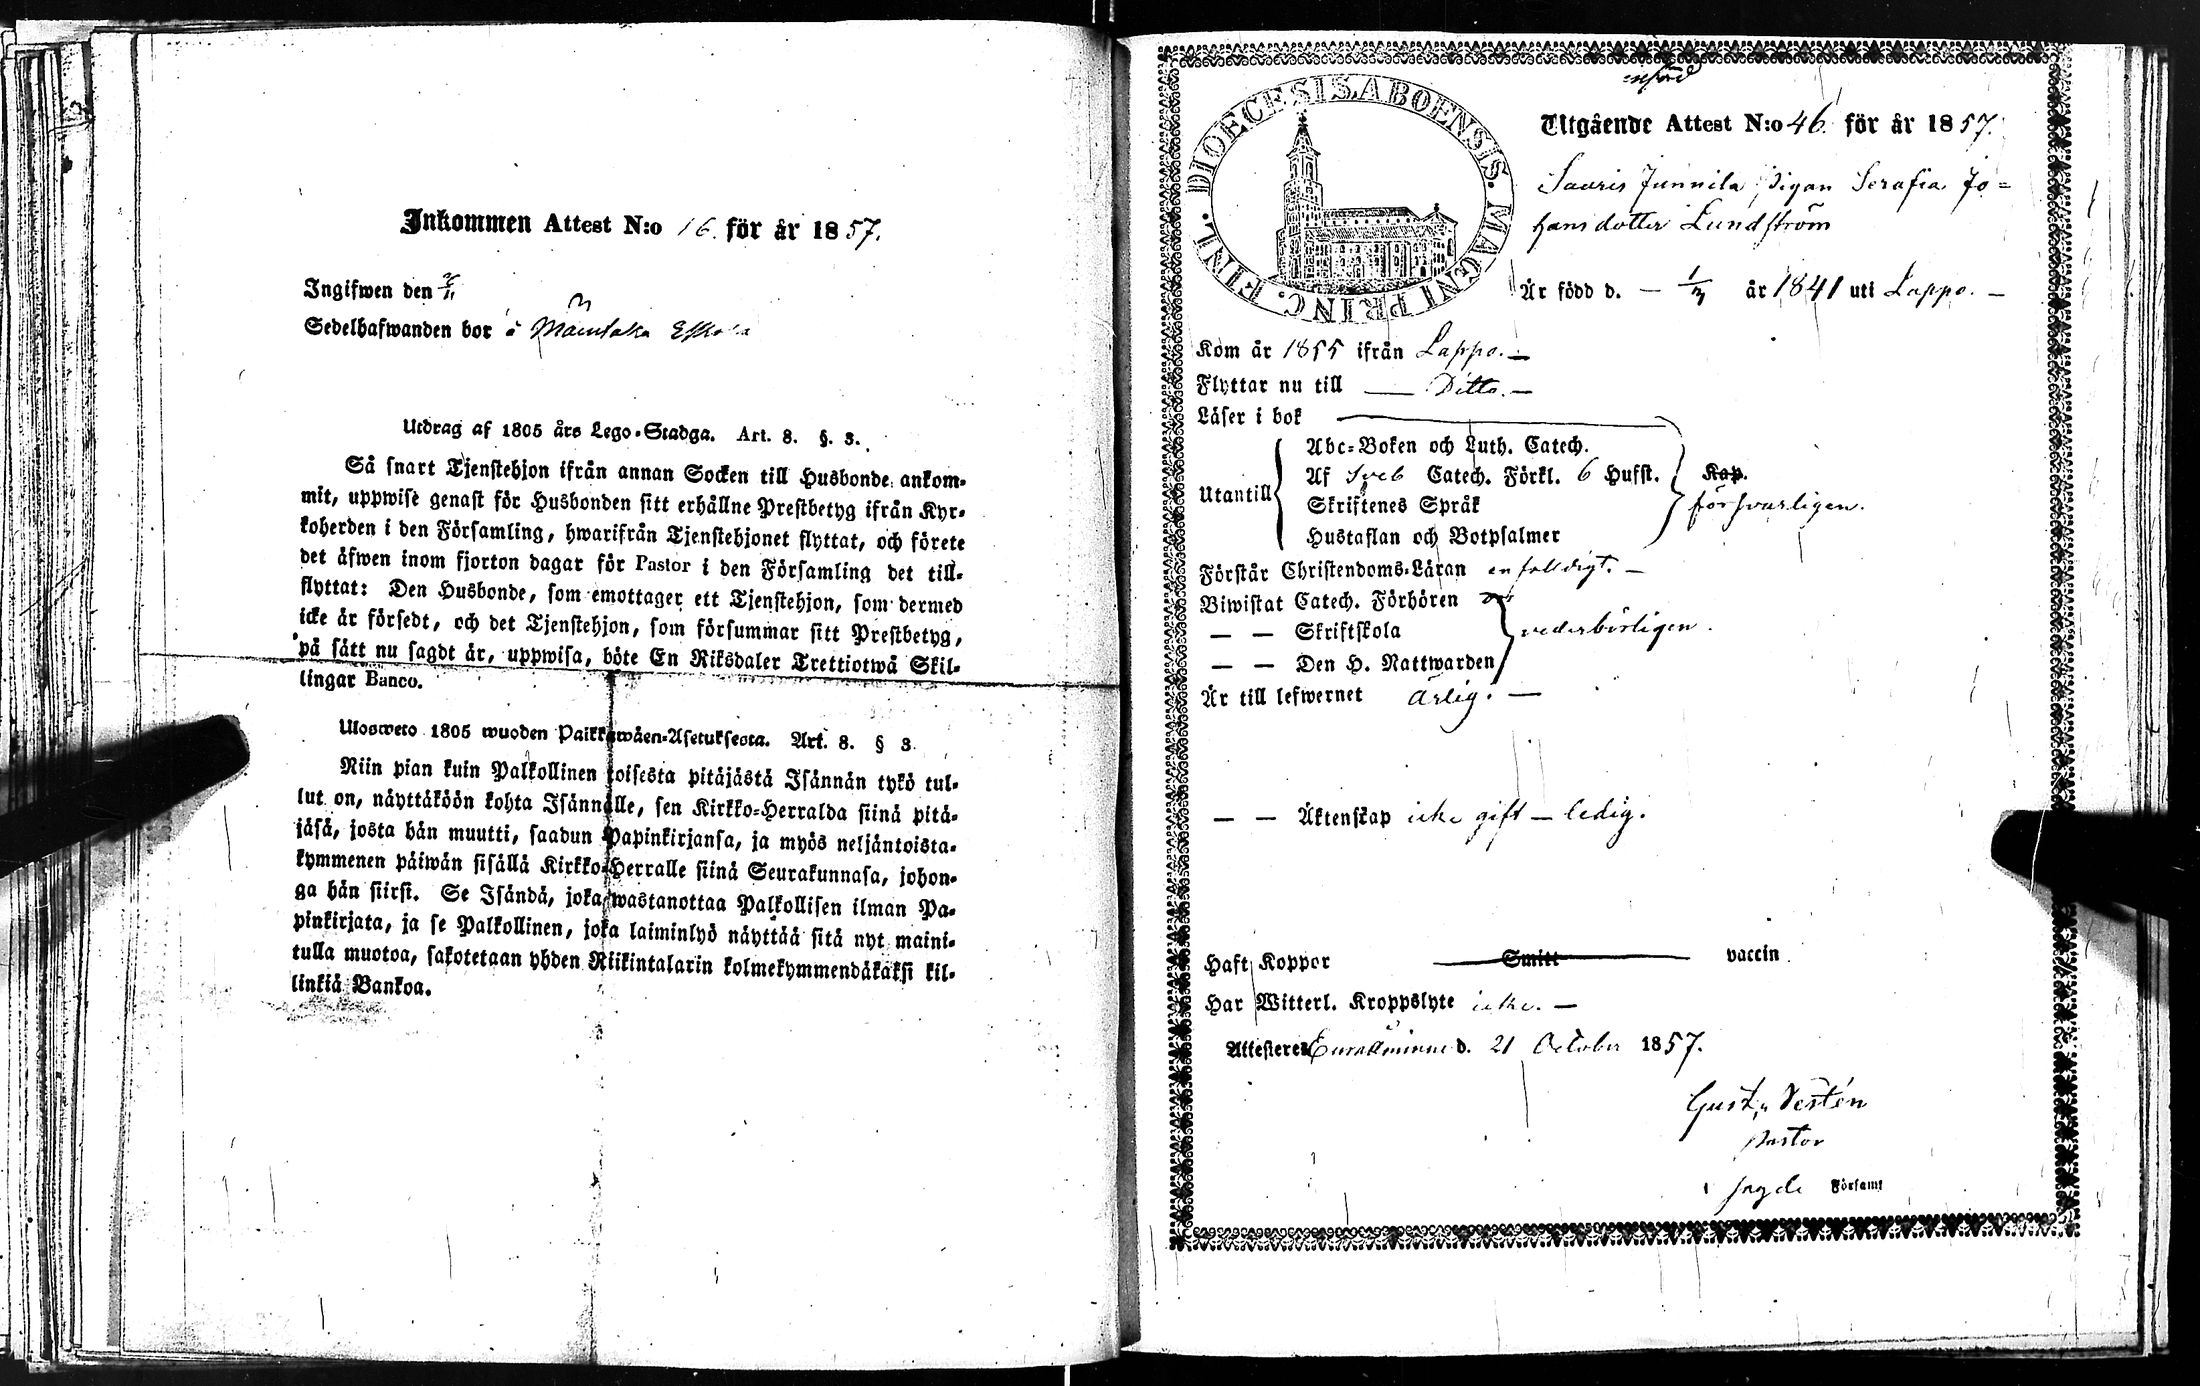 Inkommen Attest N:o 16. för år 1857.
Ingifwen den
Sedelhafwanden bor å
Utdrag af 1805 års Lego-Stadga. Art. 8. §. 3.
Så snart Tjenstehjon ifrån annan Socken till Husbonde ankom-
mit, uppwise genast för Husbonden sitt erhållne Prestbetyg ifrån Kyr-
koherden i den Församling, hwarifrån Tjenstehjonet flyttat, och förete
det äfwen inom fjorton dagar för Pastor i den Församling det till-
flyttat: Den Husbonde, som emottager ett Tjenstehjon, som dermed
icke är försedt, och det Tjenstehjon, som försummar sitt Prestbetyg,
på sätt nu sagdt är, uppwisa, böte En Riksdaler Trettiotwå Skil-
lingar Banco.
Ulosweto 1805 wuoden Paikkawäen-Asetuksesta. Art. 8. § 3.
Niin pian kuin Palkollinen toisesta pitäjästä Isännän tykö tul-
lut on, näyttäköön kohta Isännälle, sen Kirkko-Herralda siinä pitä-
jäsä, josta hän muutti, saadun Papinkirjansa, ja myös neljäntoista-
kymmenen päiwän sisällä Kirkko-Herralle siinä Seurakunnasa, johon-
ga hän siirsi. Se Isändä, joka wastanottaa Palkollisen ilman Pa-
pinkirjata, ja se Palkollinen, joka laiminlyö näyttää sitä nyt maini-
tulla muotoa, sakotetaan yhden Riikintalarin kolmekymmendäkaksi kil-
linkiä Bankoa.
DIOECESIS. ABOENSIS. MAGNI PRINC. FINL.
införd
Utgående Attest N:o 46. för år 1857.
Sauris Junnila pigan Serafia Jo=
hansdotter Lundström
Är född d. — 1/3 år 1841 uti Lappo. —
Kom år 1855 ifrån Lappo. —
Flyttar nu till — Ditto. —
Läser i bok
Abc-Boken och Luth. Catech.
Af Sveb Catech. Förkl. 6 Hufst. Kap.
Utantill
Skriftenes Språk försvarligen.
Hustaflan och Botpsalmer
Förstår Christendoms-Läran enfalldigt. —
Biwistat Catech. Förhören
— — Skriftskola vederbörligen.
— — Den H. Nattwarden
Är till lefwernet ärlig. —
— — Äktenskap icke gift — ledig.
Haft Koppor Smitt vaccin.
Har Witterl. Kroppslyte icke. —
Attesteres Euraåminne d. 21 October 1857.
Gust. Vestén
Pastor
i sagde Församl